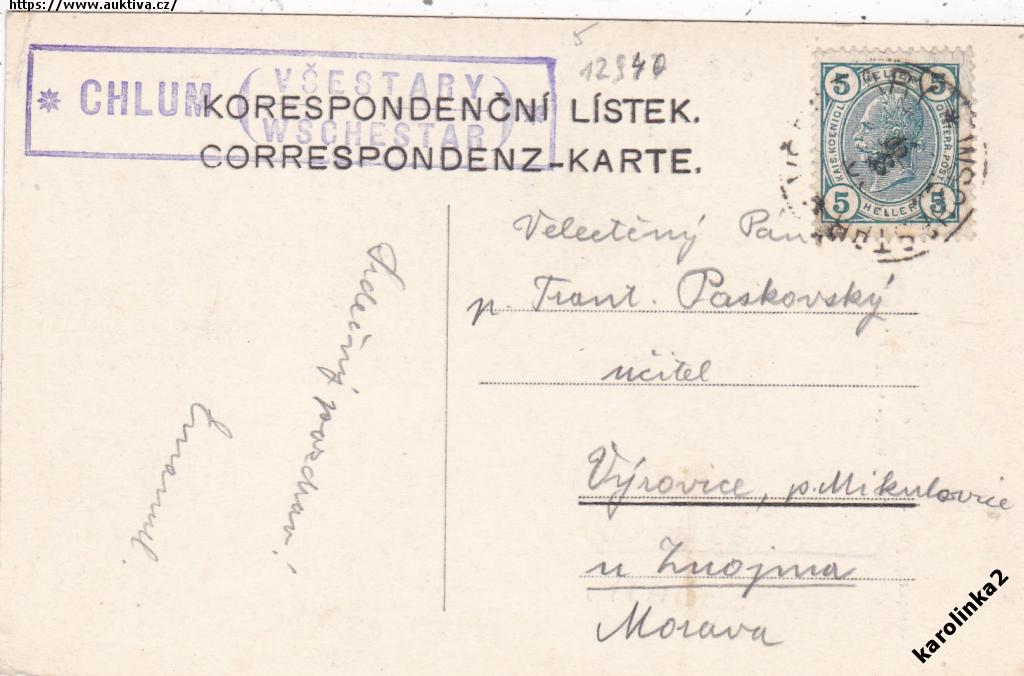 https://www.auktiva.cz/
5
12940
* CHLUM (VŠESTARY
WSCHESTAR) *
KORESPONDENČNÍ LÍSTEK.
CORRESPONDENZ-KARTE.
5 HELLER 5
KAIS. KOENIGL. OESTERR. POST
5 HELLER 5
Velectěný Pán
p. Frant. Paskovský
učitel
Výrovice, p. Mikulovice
u Znojma
Morava
Srdečný pozdrav!
Emanuel.
karolinka2